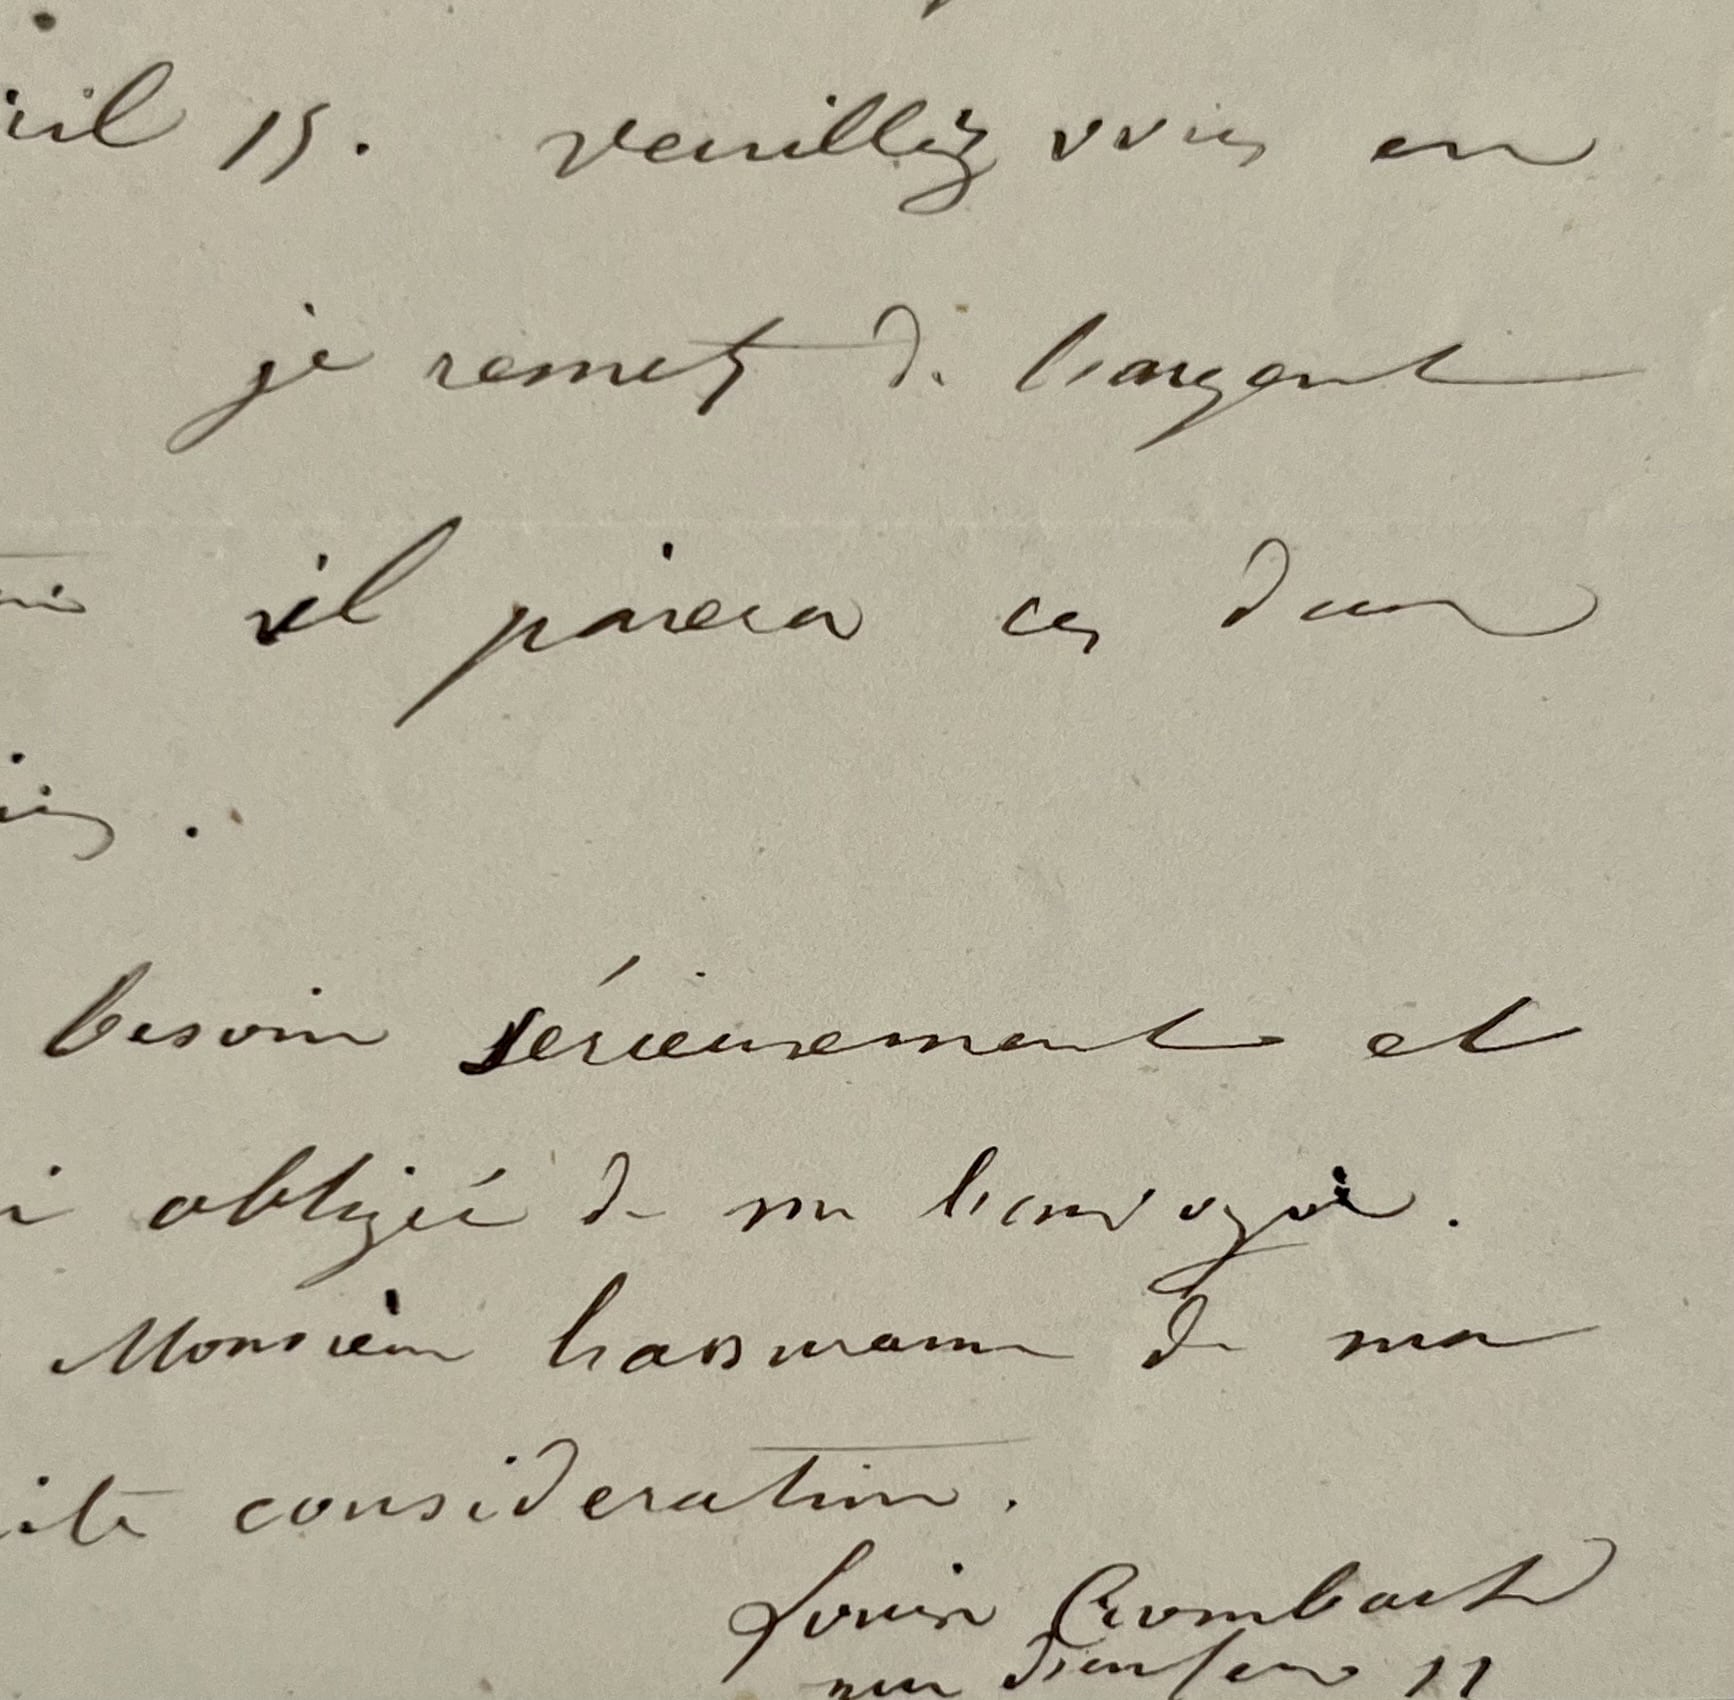 15. veuillez vous en
je remets de l'argent
il paiera ces deux
besoin sérieusement et
obligé de me l'envoyer.
Monsieur hausmann de ma
consideration.
Louis Crombach
rue 11